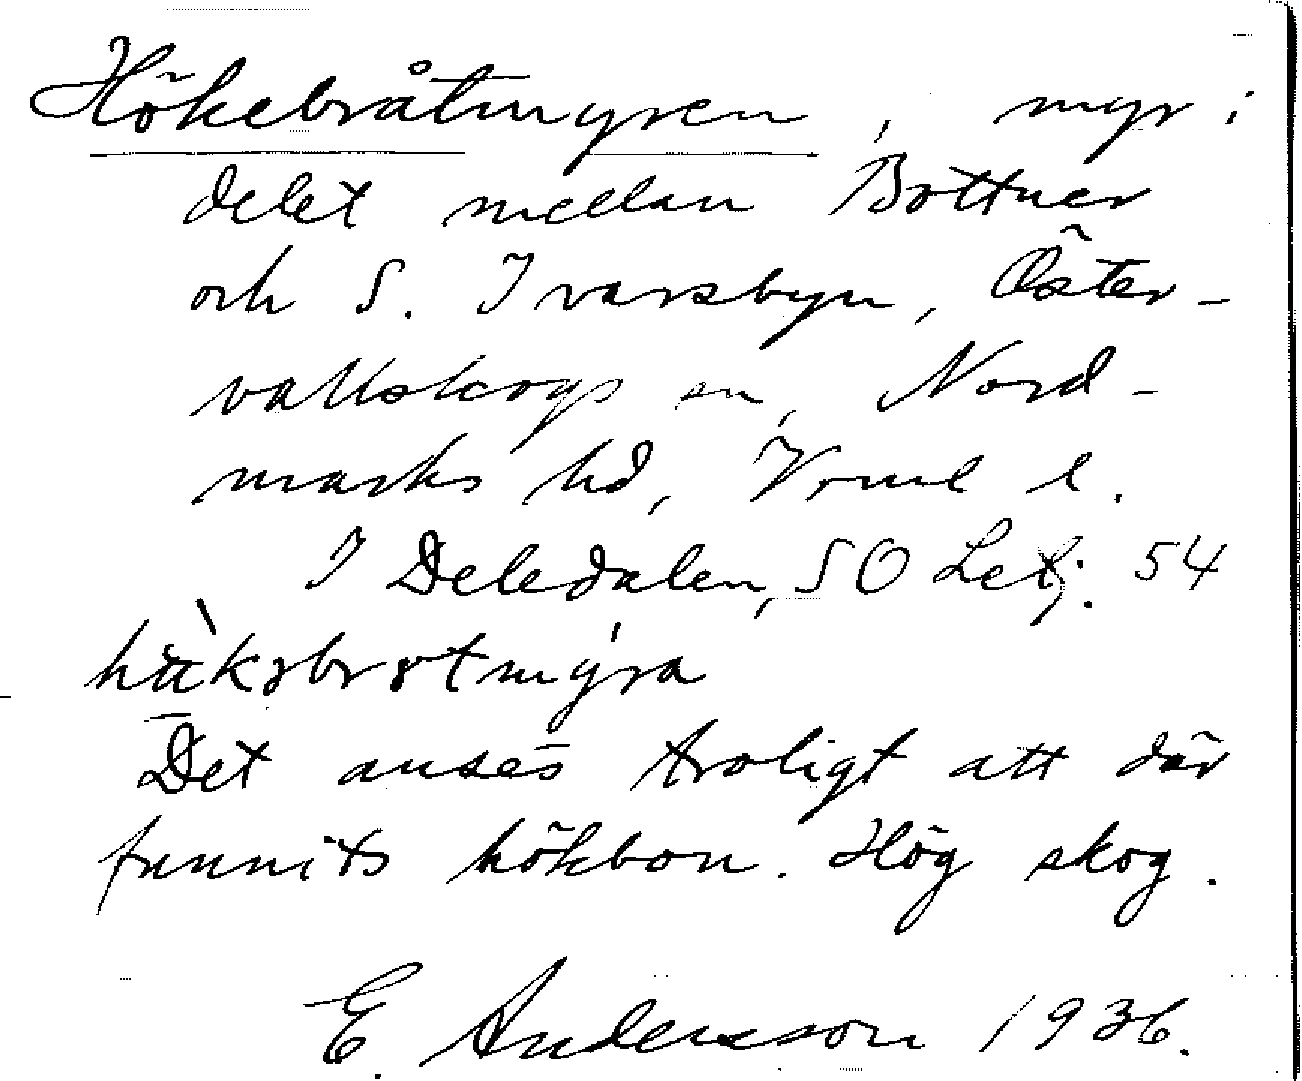 Hökebråtmyren, myr i
delet mellan Bottner
och S. Ivarsbyn, Öster-
vallskogs sn, Nord-
marks hd, Vrml l.
I Deledalen, SO Lelj. 54
hökəbrotmýra
Det anses troligt att där
funnits hökbon. Hög skog.
E. Andersson 1936.